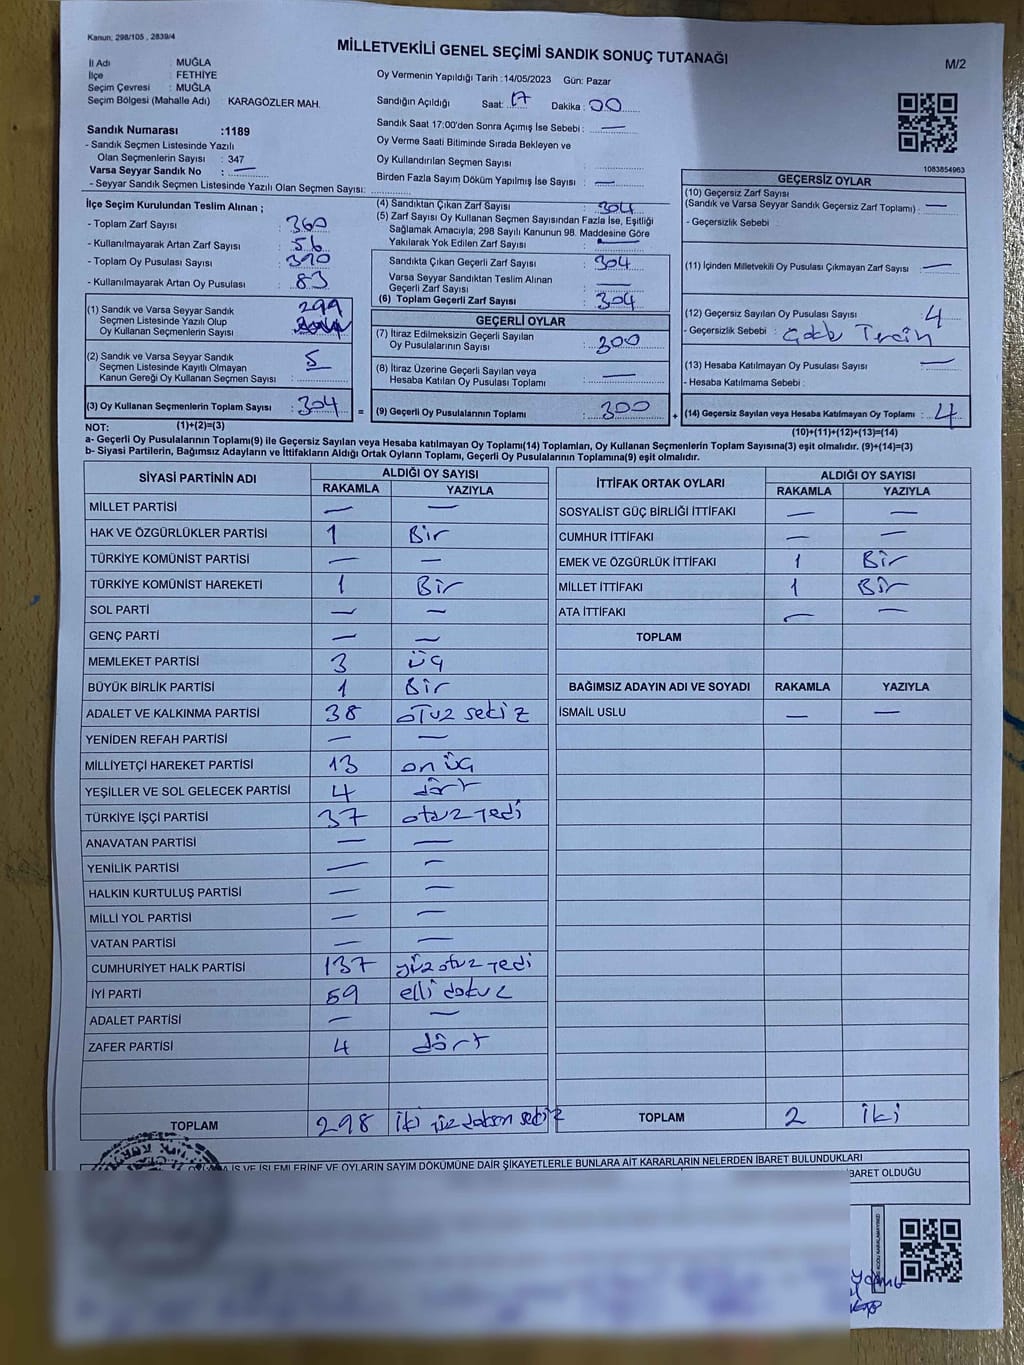 Kanun; 298/105 , 2839/4
MİLLETVEKİLİ GENEL SEÇİMİ SANDIK SONUÇ TUTANAĞI
M/2
İl Adı : MUĞLA
İlçe : FETHİYE
Seçim Çevresi : MUĞLA
Seçim Bölgesi (Mahalle Adı) KARAGÖZLER MAH.
Sandık Numarası :1189
- Sandık Seçmen Listesinde Yazılı
Olan Seçmenlerin Sayısı : 347
Varsa Seyyar Sandık No : —
- Seyyar Sandık Seçmen Listesinde Yazılı Olan Seçmen Sayısı:
Oy Vermenin Yapıldığı Tarih :14/05/2023 Gün: Pazar
Sandığın Açıldığı Saat: 17 Dakika : 00
Sandık Saat 17:00'den Sonra Açımış İse Sebebi : —
Oy Verme Saati Bitiminde Sırada Bekleyen ve
Oy Kullandırılan Seçmen Sayısı
Birden Fazla Sayım Döküm Yapılmış İse Sayısı : —
1083854963
İlçe Seçim Kurulundan Teslim Alınan ;
- Toplam Zarf Sayısı : 360
- Kullanılmayarak Artan Zarf Sayısı : 56
- Toplam Oy Pusulası Sayısı : 390
- Kullanılmayarak Artan Oy Pusulası : 83
(1) Sandık ve Varsa Seyyar Sandık
Seçmen Listesinde Yazılı Olup
Oy Kullanan Seçmenlerin Sayısı : 299
(2) Sandık ve Varsa Seyyar Sandık
Seçmen Listesinde Kayıtlı Olmayan
Kanun Gereği Oy Kullanan Seçmen Sayısı : 5
(3) Oy Kullanan Seçmenlerin Toplam Sayısı : 304 =
(1)+(2)=(3)
(4) Sandıktan Çıkan Zarf Sayısı : 304
(5) Zarf Sayısı Oy Kullanan Seçmen Sayısından Fazla İse, Eşitliği
Sağlamak Amacıyla, 298 Sayılı Kanunun 98. Maddesine Göre
Yakılarak Yok Edilen Zarf Sayısı : —
Sandıkta Çıkan Geçerli Zarf Sayısı : 304
Varsa Seyyar Sandıktan Teslim Alınan
Geçerli Zarf Sayısı : —
(6) Toplam Geçerli Zarf Sayısı : 304
GEÇERLİ OYLAR
(7) İtiraz Edilmeksizin Geçerli Sayılan
Oy Pusulalarının Sayısı : 300
(8) İtiraz Üzerine Geçerli Sayılan veya
Hesaba Katılan Oy Pusulası Toplamı : —
(9) Geçerli Oy Pusulalarının Toplamı : 300 +
GEÇERSİZ OYLAR
(10) Geçersiz Zarf Sayısı
(Sandık ve Varsa Seyyar Sandık Geçersiz Zarf Toplamı) : —
- Geçersizlik Sebebi :
(11) İçinden Milletvekili Oy Pusulası Çıkmayan Zarf Sayısı : —
(12) Geçersiz Sayılan Oy Pusulası Sayısı : 4
- Geçersizlik Sebebi : Çokk Tercih
(13) Hesaba Katılmayan Oy Pusulası Sayısı : —
- Hesaba Katılmama Sebebi :
(14) Geçersiz Sayılan veya Hesaba Katılmayan Oy Toplamı : 4
(10)+(11)+(12)+(13)=(14)
NOT:
a- Geçerli Oy Pusulalarının Toplamı(9) ile Geçersiz Sayılan veya Hesaba katılmayan Oy Toplamı(14) Toplamları, Oy Kullanan Seçmenlerin Toplam Sayısına(3) eşit olmalıdır. (9)+(14)=(3)
b- Siyasi Partilerin, Bağımsız Adayların ve İttifakların Aldığı Ortak Oyların Toplamı, Geçerli Oy Pusulalarının Toplamına(9) eşit olmalıdır.
SİYASİ PARTİNİN ADI ALDIĞI OY SAYISI
RAKAMLA YAZIYLA
MİLLET PARTİSİ — —
HAK VE ÖZGÜRLÜKLER PARTİSİ 1 Bir
TÜRKİYE KOMÜNİST PARTİSİ — —
TÜRKİYE KOMÜNİST HAREKETİ 1 Bir
SOL PARTİ — —
GENÇ PARTİ — —
MEMLEKET PARTİSİ 3 üç
BÜYÜK BİRLİK PARTİSİ 1 Bir
ADALET VE KALKINMA PARTİSİ 38 otuz sekiz
YENİDEN REFAH PARTİSİ — —
MİLLİYETÇİ HAREKET PARTİSİ 13 on üç
YEŞİLLER VE SOL GELECEK PARTİSİ 4 dört
TÜRKİYE İŞÇİ PARTİSİ 37 otuz yedi
ANAVATAN PARTİSİ — —
YENİLİK PARTİSİ — —
HALKIN KURTULUŞ PARTİSİ — —
MİLLİ YOL PARTİSİ — —
VATAN PARTİSİ — —
CUMHURİYET HALK PARTİSİ 137 yüz otuz yedi
İYİ PARTİ 59 elli dokuz
ADALET PARTİSİ — —
ZAFER PARTİSİ 4 dört
TOPLAM 298 iki yüz doksan sekiz
İTTİFAK ORTAK OYLARI ALDIĞI OY SAYISI
RAKAMLA YAZIYLA
SOSYALİST GÜÇ BİRLİĞİ İTTİFAKI — —
CUMHUR İTTİFAKI — —
EMEK VE ÖZGÜRLÜK İTTİFAKI 1 Bir
MİLLET İTTİFAKI 1 Bir
ATA İTTİFAKI — —
TOPLAM
BAĞIMSIZ ADAYIN ADI VE SOYADI RAKAMLA YAZIYLA
İSMAİL USLU — —
TOPLAM 2 iki
İŞ VE İŞLEMLERİNE VE OYLARIN SAYIM DÖKÜMÜNE DAİR ŞİKAYETLERLE BUNLARA AİT KARARLARIN NELERDEN İBARET BULUNDUKLARI
İBARET OLDUĞU